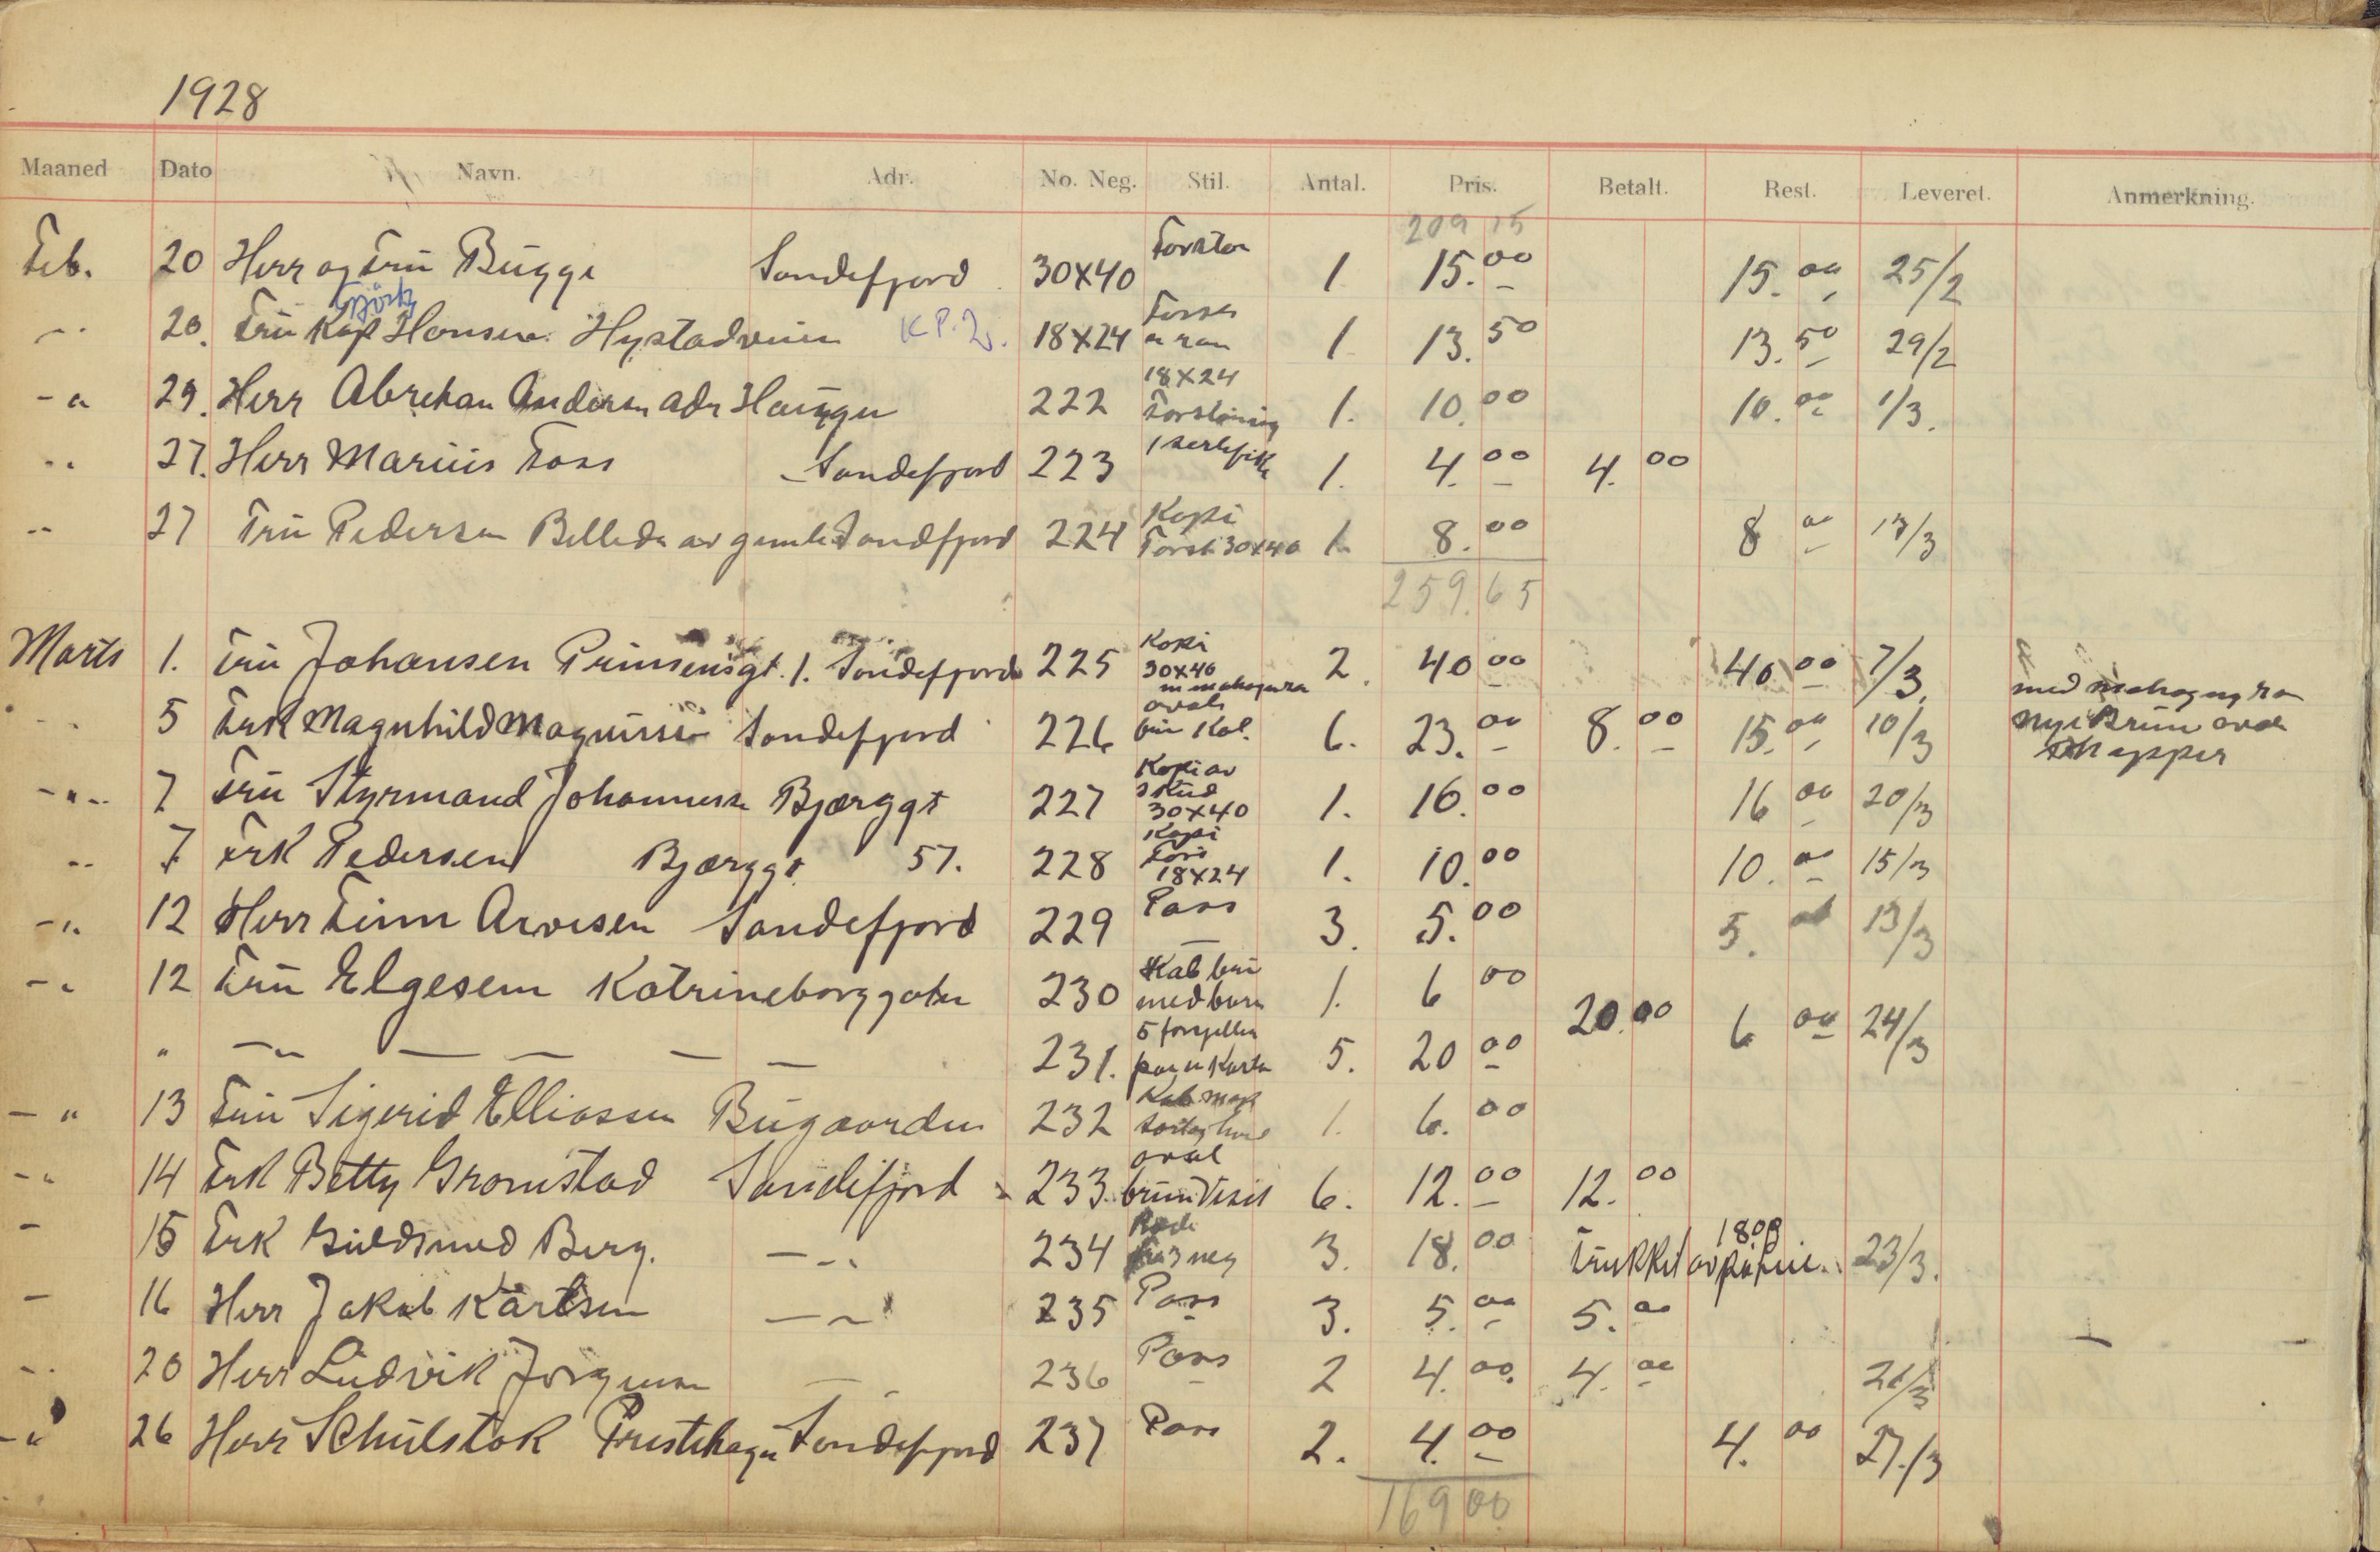 1928
Maaned Dato Navn. Adr. No. Neg. Stil. Antal. Pris. Betalt. Rest. Leveret. Anmerkning.
209 15
Feb. 20 Herr og Frü Bügge Sandefjord 30x40 1 15.00 15.00 25/2
20. Frü Kap Hansen Hystadveien KP.2. 18x24 1 13.50 13.50 29/2
18x24
29. Herr Abreham Andersen adr Haügen 222 1. 10.00 10.00 1/3.
27. Herr Mariüs Foss Sandefjord 223 1. 4.00 4.00
Kopi
27 Frü Pedersen Billede av gamle Sandfjord 224 Forst 30x40 1. 8.00 8 00 13/3
259.65
Kopi
Marts 1. Frü Johansen Prinsensgt. 1. Sandefjord 225 30x40 2. 40 00 40 00 7/3. med mahogny ra
oval
5 Frk Magnhild Magnüssen Sandefjord 226 Kol. 6. 23.00 8.00 15.00 10/3 nye Brün ovale
Mapper
Kopi av
7 Frü Styrmand Johannesen Bjærggt 227 30x40 1. 16.00 16 00 20/3
Kopi
7 Frk Pedersen Bjærggt 57. 228 18x24 1. 10.00 10.00 15/3
12 Herr Finn Arvesen Sandefjord 229 Pass 3. 5.00 5. 13/3
12 Frü Elgesem Katrineborggaten 230 Kab brü med barn 1. 6 00 6 00 24/3
231. 5. 20 00 20.00
13 Frü Sigerid Elliassen Bügaarden 232 Kab 1. 6.00
oval
14 Frk Betty Gromstad Sandefjord 233 brün Visit 6. 12.00 12.00
15 Frk Güldsmed Berg. 234 3 neg 3. 18.00 Trükket av 18.00 23/3.
16 Herr Jakob Karlsen 235 Pass 3. 5.00 5.00
20 Herr Lüdvik Jørgensen 236 Pass 2 4.00. 4.00
26 Herr Schülstok Prestehagen Sandefjord 237 Pass 2. 4.00 4.00 27./3
169 00